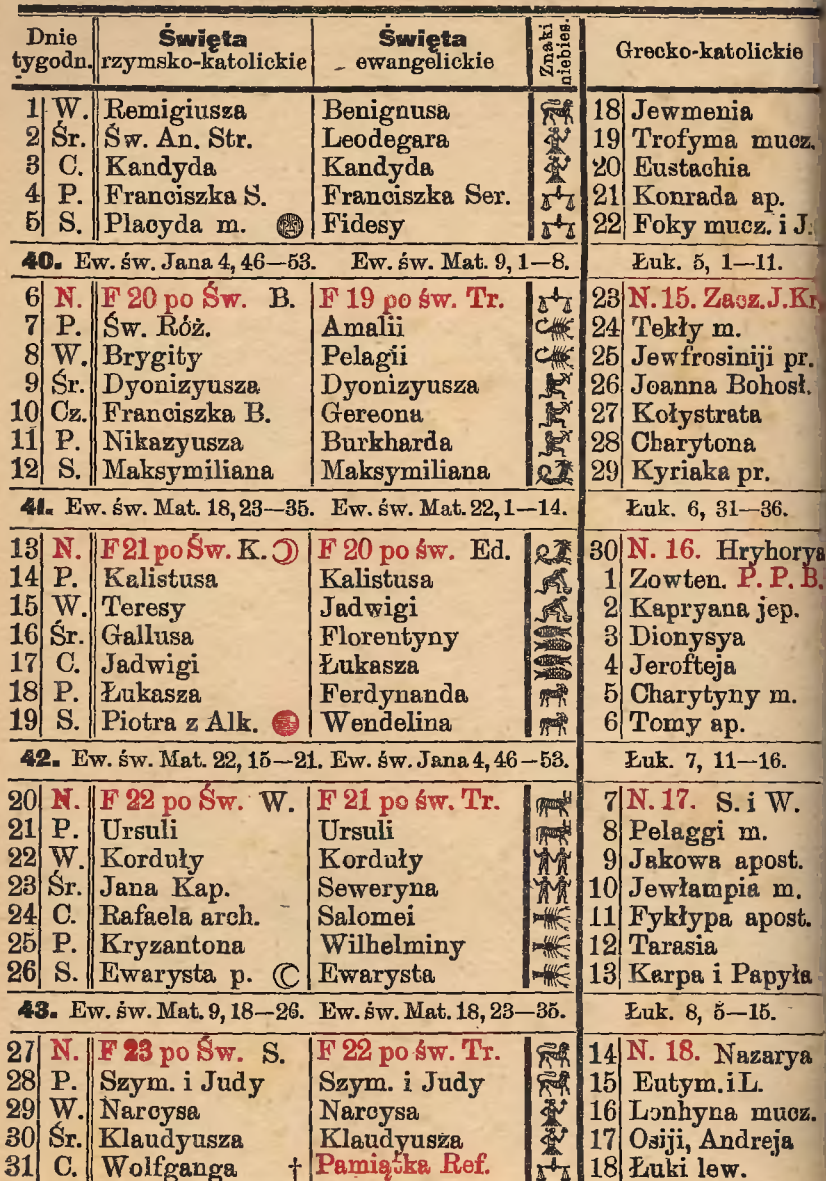 Dnie tygodn. Święta rzymsko-katolickie Święta ewangelickie Znaki niebies. Grecko-katolickie
1 W. Remigiusza Benignusa 18 Jewmenia
2 Śr. Św. An. Str. Leodegara 19 Trofyma mucz.
3 C. Kandyda Kandyda 20 Eustachia
4 P. Franciszka S. Franciszka Ser. 21 Konrada ap.
5 S. Placyda m. Fidesy 22 Foky mucz. i J.
40. Ew. św. Jana 4, 46—53. Ew. św. Mat. 9, 1—8. Łuk. 5, 1—11.
6 N. F 20 po Św. B. F 19 po św. Tr. 23 N. 15. Zacz. J. Kr
7 P. Św. Róż. Amalii 24 Tekły m.
8 W. Brygity Pelagii 25 Jewfrosiniji pr.
9 Śr. Dyonizyusza Dyonizyusza 26 Joanna Bohosł.
10 Cz. Franciszka B. Gereona 27 Kołystrata
11 P. Nikazyusza Burkharda 28 Charytona
12 S. Maksymiliana Maksymiliana 29 Kyriaka pr.
41. Ew. św. Mat. 18, 23—35. Ew. św. Mat. 22, 1—14. Łuk. 6, 31—36.
13 N. F 21 po Św. K. F 20 po św. Ed. 30 N. 16. Hryhorya
14 P. Kalistusa Kalistusa 1 Zowten. P. P. B.
15 W. Teresy Jadwigi 2 Kapryana jep.
16 Śr. Gallusa Florentyny 3 Dionysya
17 C. Jadwigi Łukasza 4 Jerofteja
18 P. Łukasza Ferdynanda 5 Charytyny m.
19 S. Piotra z Alk. Wendelina 6 Tomy ap.
42. Ew. św. Mat. 22, 15—21. Ew. św. Jana 4, 46—53. Łuk. 7, 11—16.
20 N. F 22 po Św. W. F 21 po św. Tr. 7 N. 17. S. i W.
21 P. Ursuli Ursuli 8 Pelaggi m.
22 W. Korduły Korduły 9 Jakowa apost.
23 Śr. Jana Kap. Seweryna 10 Jewłampia m.
24 C. Rafaela arch. Salomei 11 Fykłypa apost.
25 P. Kryzantona Wilhelminy 12 Tarasia
26 S. Ewarysta p. Ewarysta 13 Karpa i Papyła
43. Ew. św. Mat. 9, 18—26. Ew. św. Mat. 18, 23—35. Łuk. 8, 5—15.
27 N. F 23 po Św. S. F 22 po św. Tr. 14 N. 18. Nazarya
28 P. Szym. i Judy Szym. i Judy 15 Eutym. i L.
29 W. Narcysa Narcysa 16 Lonhyna mucz.
30 Śr. Klaudyusza Klaudyusza 17 Osiji, Andreja
31 C. Wolfganga † Pamiątka Ref. 18 Łuki lew.